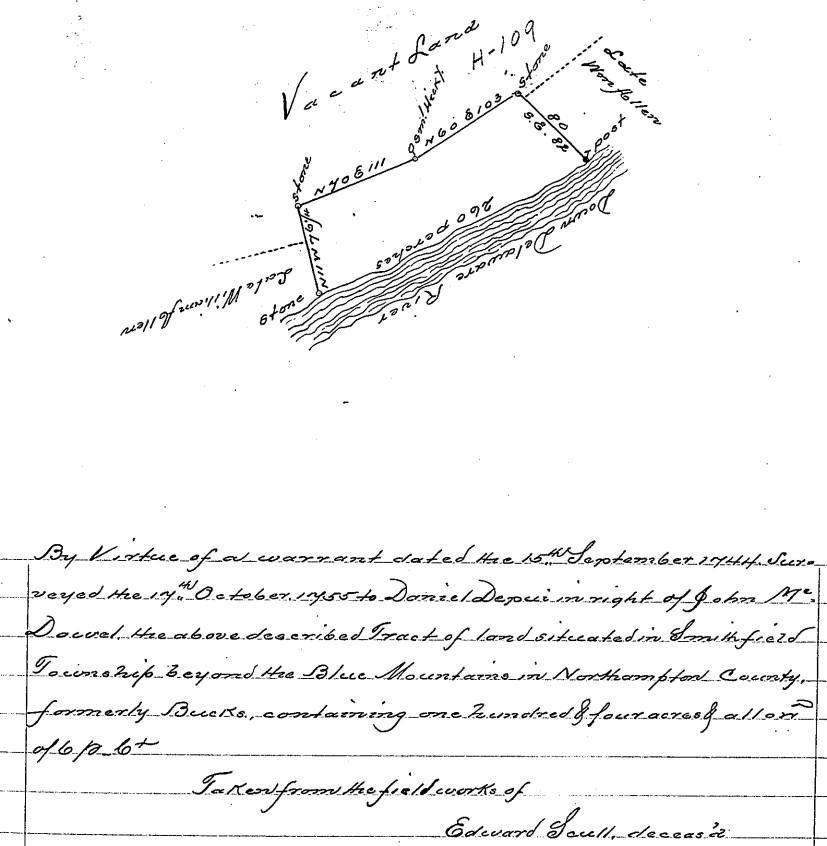 Vacant Land
H-109
stone
Late
Wm Allen
Smil Hickt
N 60 E 103
80
S.E. 82
post
stone
N 70 E 111
N 11 W 79
260 perches
Down Delaware River
Late William Allen
stone
By Virtue of a warrant dated the 15th September 1744. Sur=
veyed the 17th October 1755 to Daniel Depui in right of John Mc.
Dowel, the above described Tract of land situated in Smithfield
Township beyond the Blue Mountains in Northampton County,
formerly Bucks, containing one hundred & four acres & allow
of 6 p Ct
Taken from the field works of
Edward Scull, deceas'd